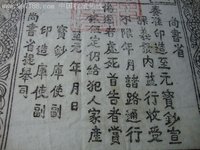 尚書省
奏准印造至元寶鈔宣
課差役內並行收受
不限年月諸路通行
偽造者處死首告者賞
銀伍定仍給犯人家產
至元 年 月 日
寶鈔庫使副
印造庫使副
尚書省提舉司